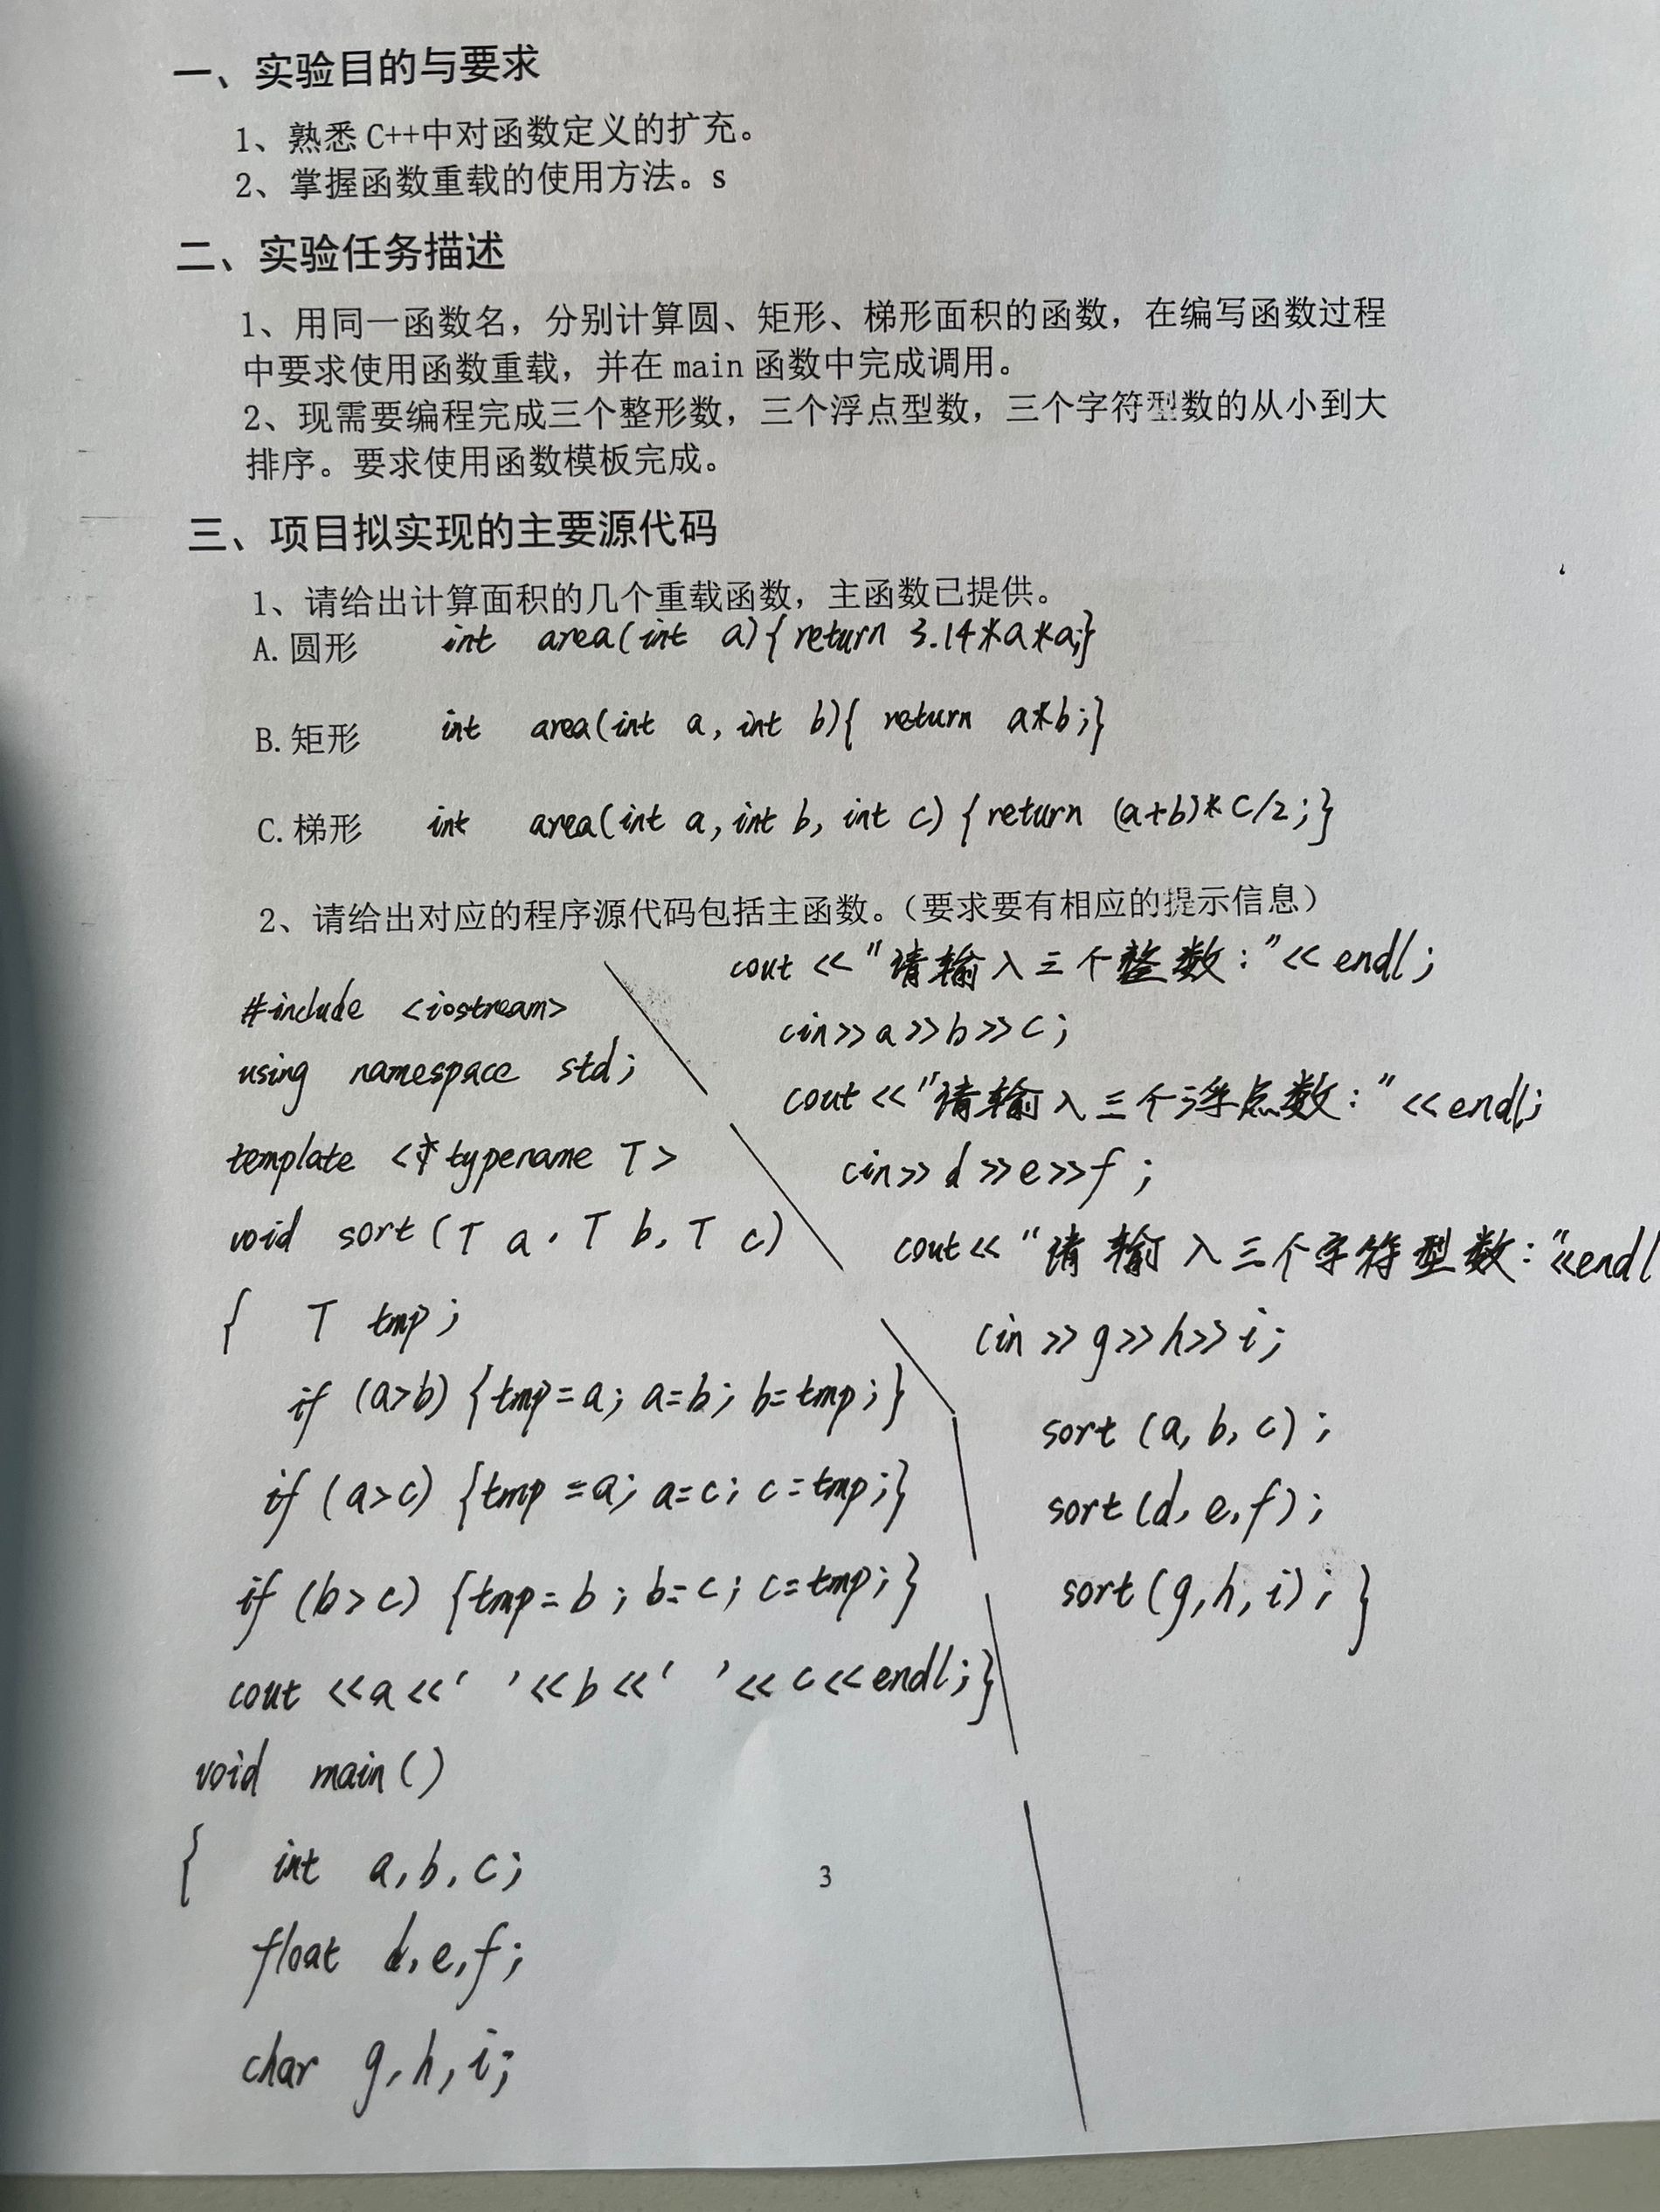 一、实验目的与要求
1、熟悉 C++中对函数定义的扩充。
2、掌握函数重载的使用方法。s
二、实验任务描述
1、用同一函数名，分别计算圆、矩形、梯形面积的函数，在编写函数过程
中要求使用函数重载，并在 main 函数中完成调用。
2、现需要编程完成三个整形数，三个浮点型数，三个字符型数的从小到大
排序。要求使用函数模板完成。
三、项目拟实现的主要源代码
1、请给出计算面积的几个重载函数，主函数已提供。
A.圆形 int area(int a){ return 3.14*a*a;}
B.矩形 int area(int a, int b){ return a*b;}
C.梯形 int area(int a, int b, int c) {return (a+b)*c/2;}
2、请给出对应的程序源代码包括主函数。（要求要有相应的提示信息）
#include <iostream>
using namespace std;
template <typename T>
void sort (T a, T b, T c)
{ T tmp;
if (a>b) {tmp=a; a=b; b=tmp;}
if (a>c) {tmp=a; a=c; c=tmp;}
if (b>c) {tmp=b; b=c; c=tmp;}
cout <<a<<' '<<b<<' '<<c<<endl;}
void main()
{ int a,b,c;
float d,e,f;
char g,h,i;
cout <<"请输入三个整数:"<<endl;
cin>>a>>b>>c;
cout<<"请输入三个浮点数:"<<endl;
cin>>d>>e>>f;
cout<<"请输入三个字符型数:"<<endl
cin>>g>>h>>i;
sort (a, b, c);
sort(d, e, f);
sort(g, h, i); }
3